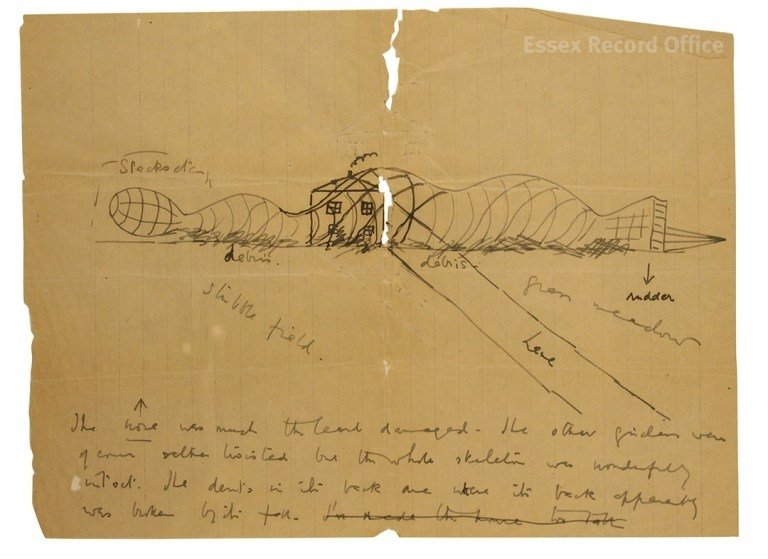 Essex Record Office
debris.
debris
stubble field.
grass meadow
rudder
Lane
The nose was much the least damaged - the other girders were
of course rather twisted but the whole skeleton was wonderfully
intact. The dents in its back are where its back apparently
was broken by its fall.